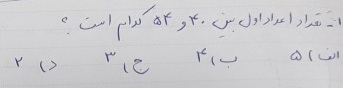 ۱- تعداد اعداد اول بین ۴۰ و ۵۴ کدام است ؟
الف) ۵ ب) ۴ ج) ۳ د) ۲